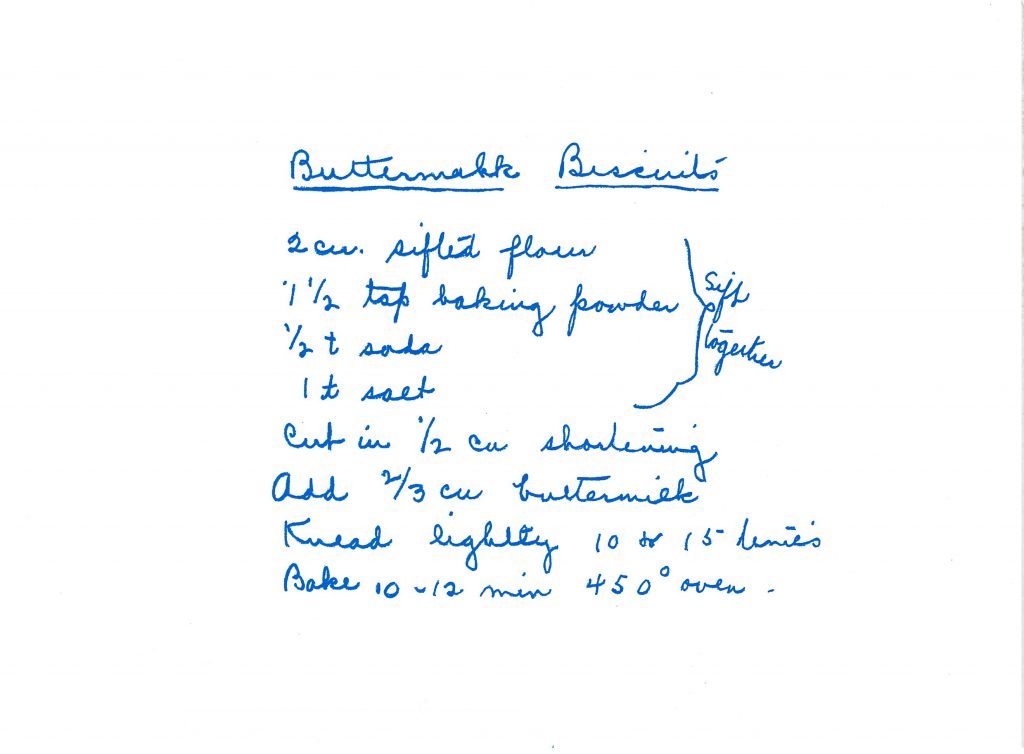 Buttermilk Biscuits
2 cu. sifted flour
1 1/2 tsp baking powder
1/2 t soda
1 t salt
Sift
together
Cut in 1/2 cu shortening
Add 2/3 cu buttermilk
Knead lightly 10 or 15 times
Bake 10-12 min 450° oven.